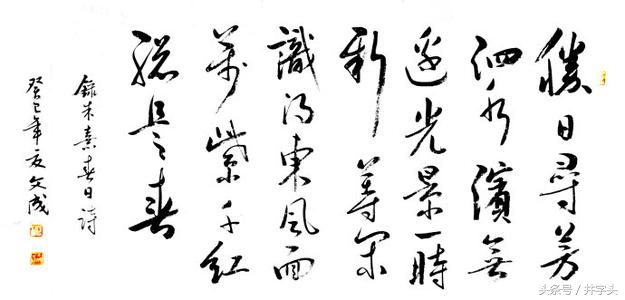 勝日尋芳
泗水濱無
邊光景一時
新等閒
識得東風面
萬紫千紅
總是春
錄朱熹春日詩
癸巳年夏文成
头条号 / 井字头